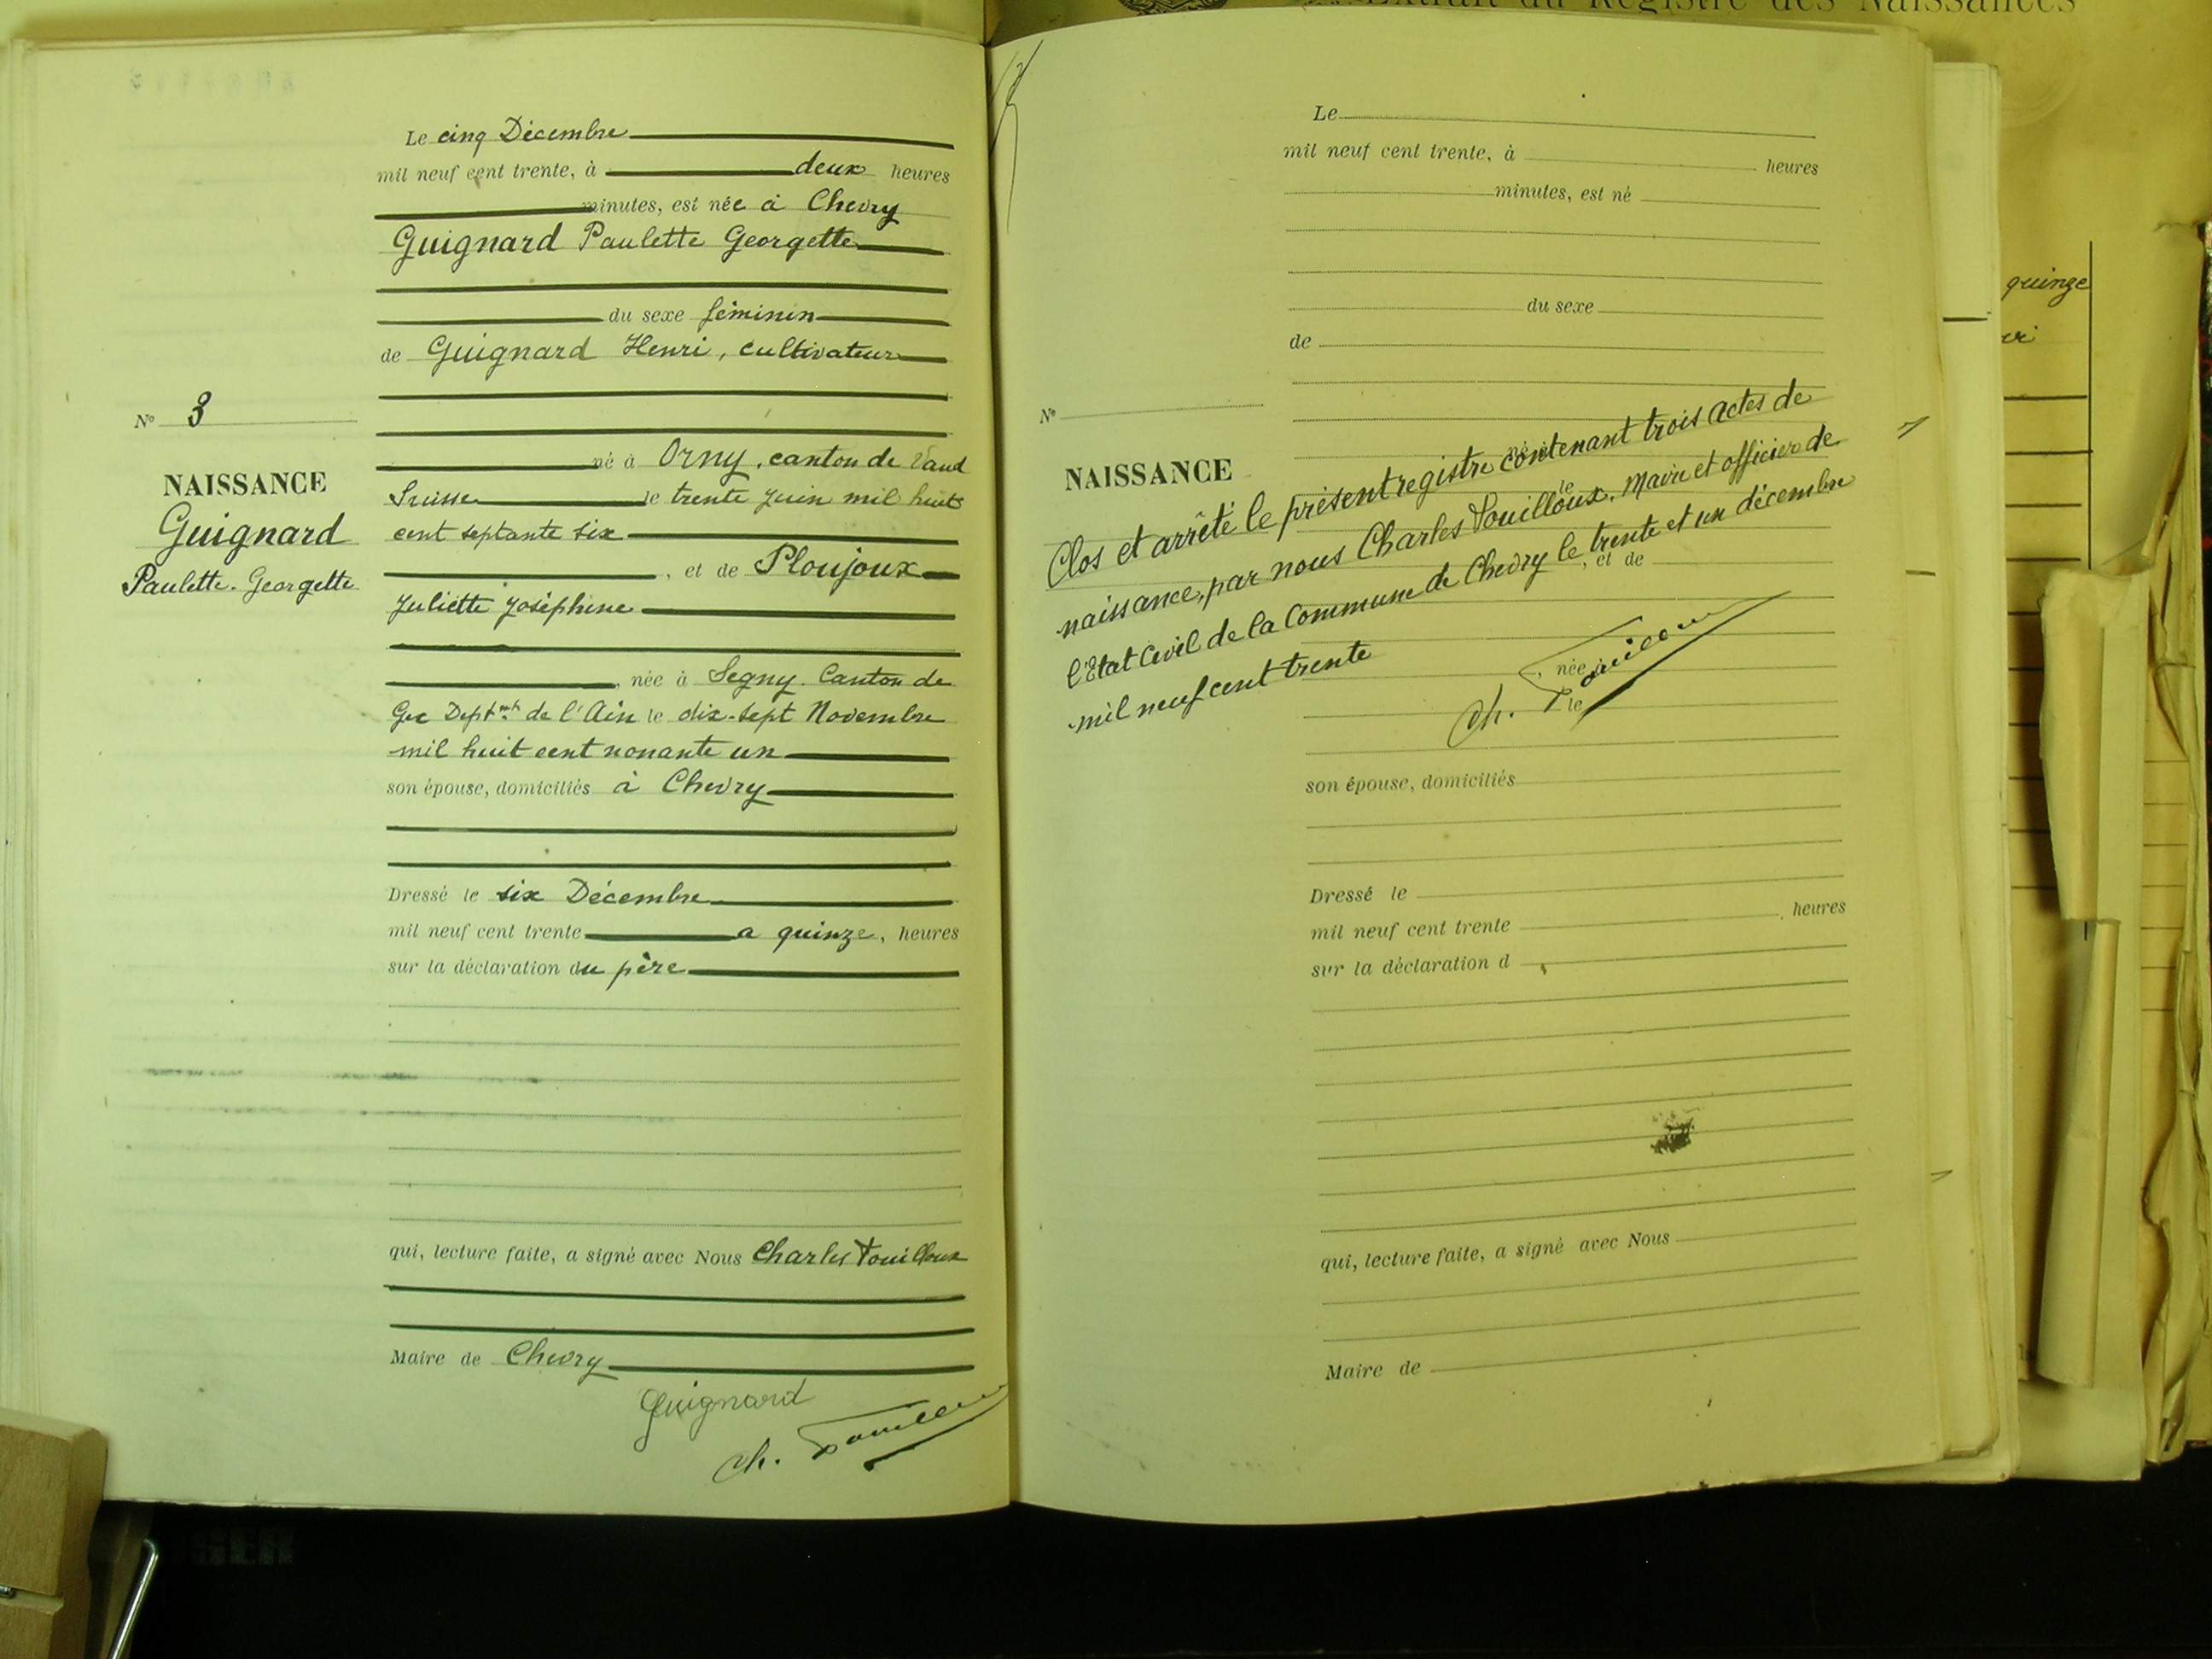 Extrait du Registre des Naissances
Le cinq Décembre
mil neuf cent trente, à deux heures
minutes, est née à Chevry
Guignard Paulette Georgette
du sexe féminin
de Guignard Henri, cultivateur
né à Orny, canton de Vaud
Suisse le trente Juin mil huit
cent septante six
, et de Ploujoux
Juliette Joséphine
, née à Segny. Canton de
Gex Deptmt de l'Ain le dix-sept Novembre
mil huit cent nonante un
son épouse, domiciliés à Chevry
Dressé le six Décembre
mil neuf cent trente a quinze, heures
sur la déclaration du père
qui, lecture faite, a signé avec Nous Charles Touilloux
Maire de Chevry
Guignard
Ch. Touilloux
N° 3
NAISSANCE
Guignard
Paulette. Georgette
Le
mil neuf cent trente, à heures
minutes, est né
du sexe
de
né à
le
, et de
, née à
le
son épouse, domiciliés
Dressé le
mil neuf cent trente , heures
sur la déclaration d
qui, lecture faite, a signé avec Nous
Maire de
N°
NAISSANCE
Clos et arrêté le présent registre contenant trois actes de
naissance, par nous Charles Touilloux. Maire et officier de
l'Etat Civil de la Commune de Chevry le trente et un décembre
mil neuf cent trente
Ch. Touilloux
quinze